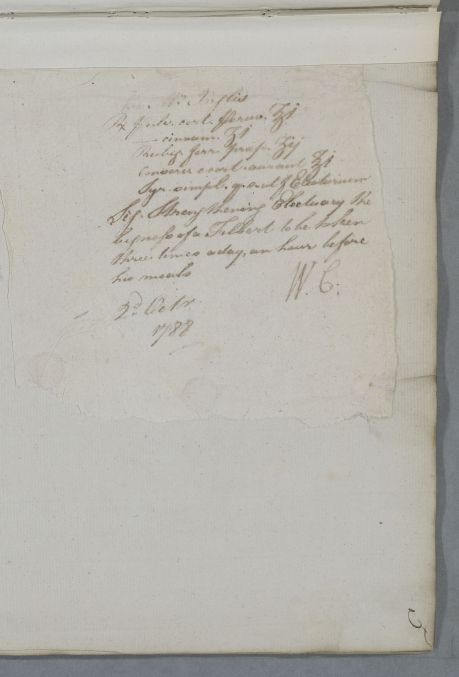 For Mr. Inglis
Rx Pulv. cort. Peruv. ℥i
— cinnam. ʒi
Rubig. ferr. ppt. ʒij
Conserv. cort. aurant. ℥i
Syr. simpl. q. s. ut f. Electarium
Sig. Strengthening Electuary the
bigness of a Filbert to be taken
three times a day, an hour before
his meals
W. C.
2d. Octr.
1788